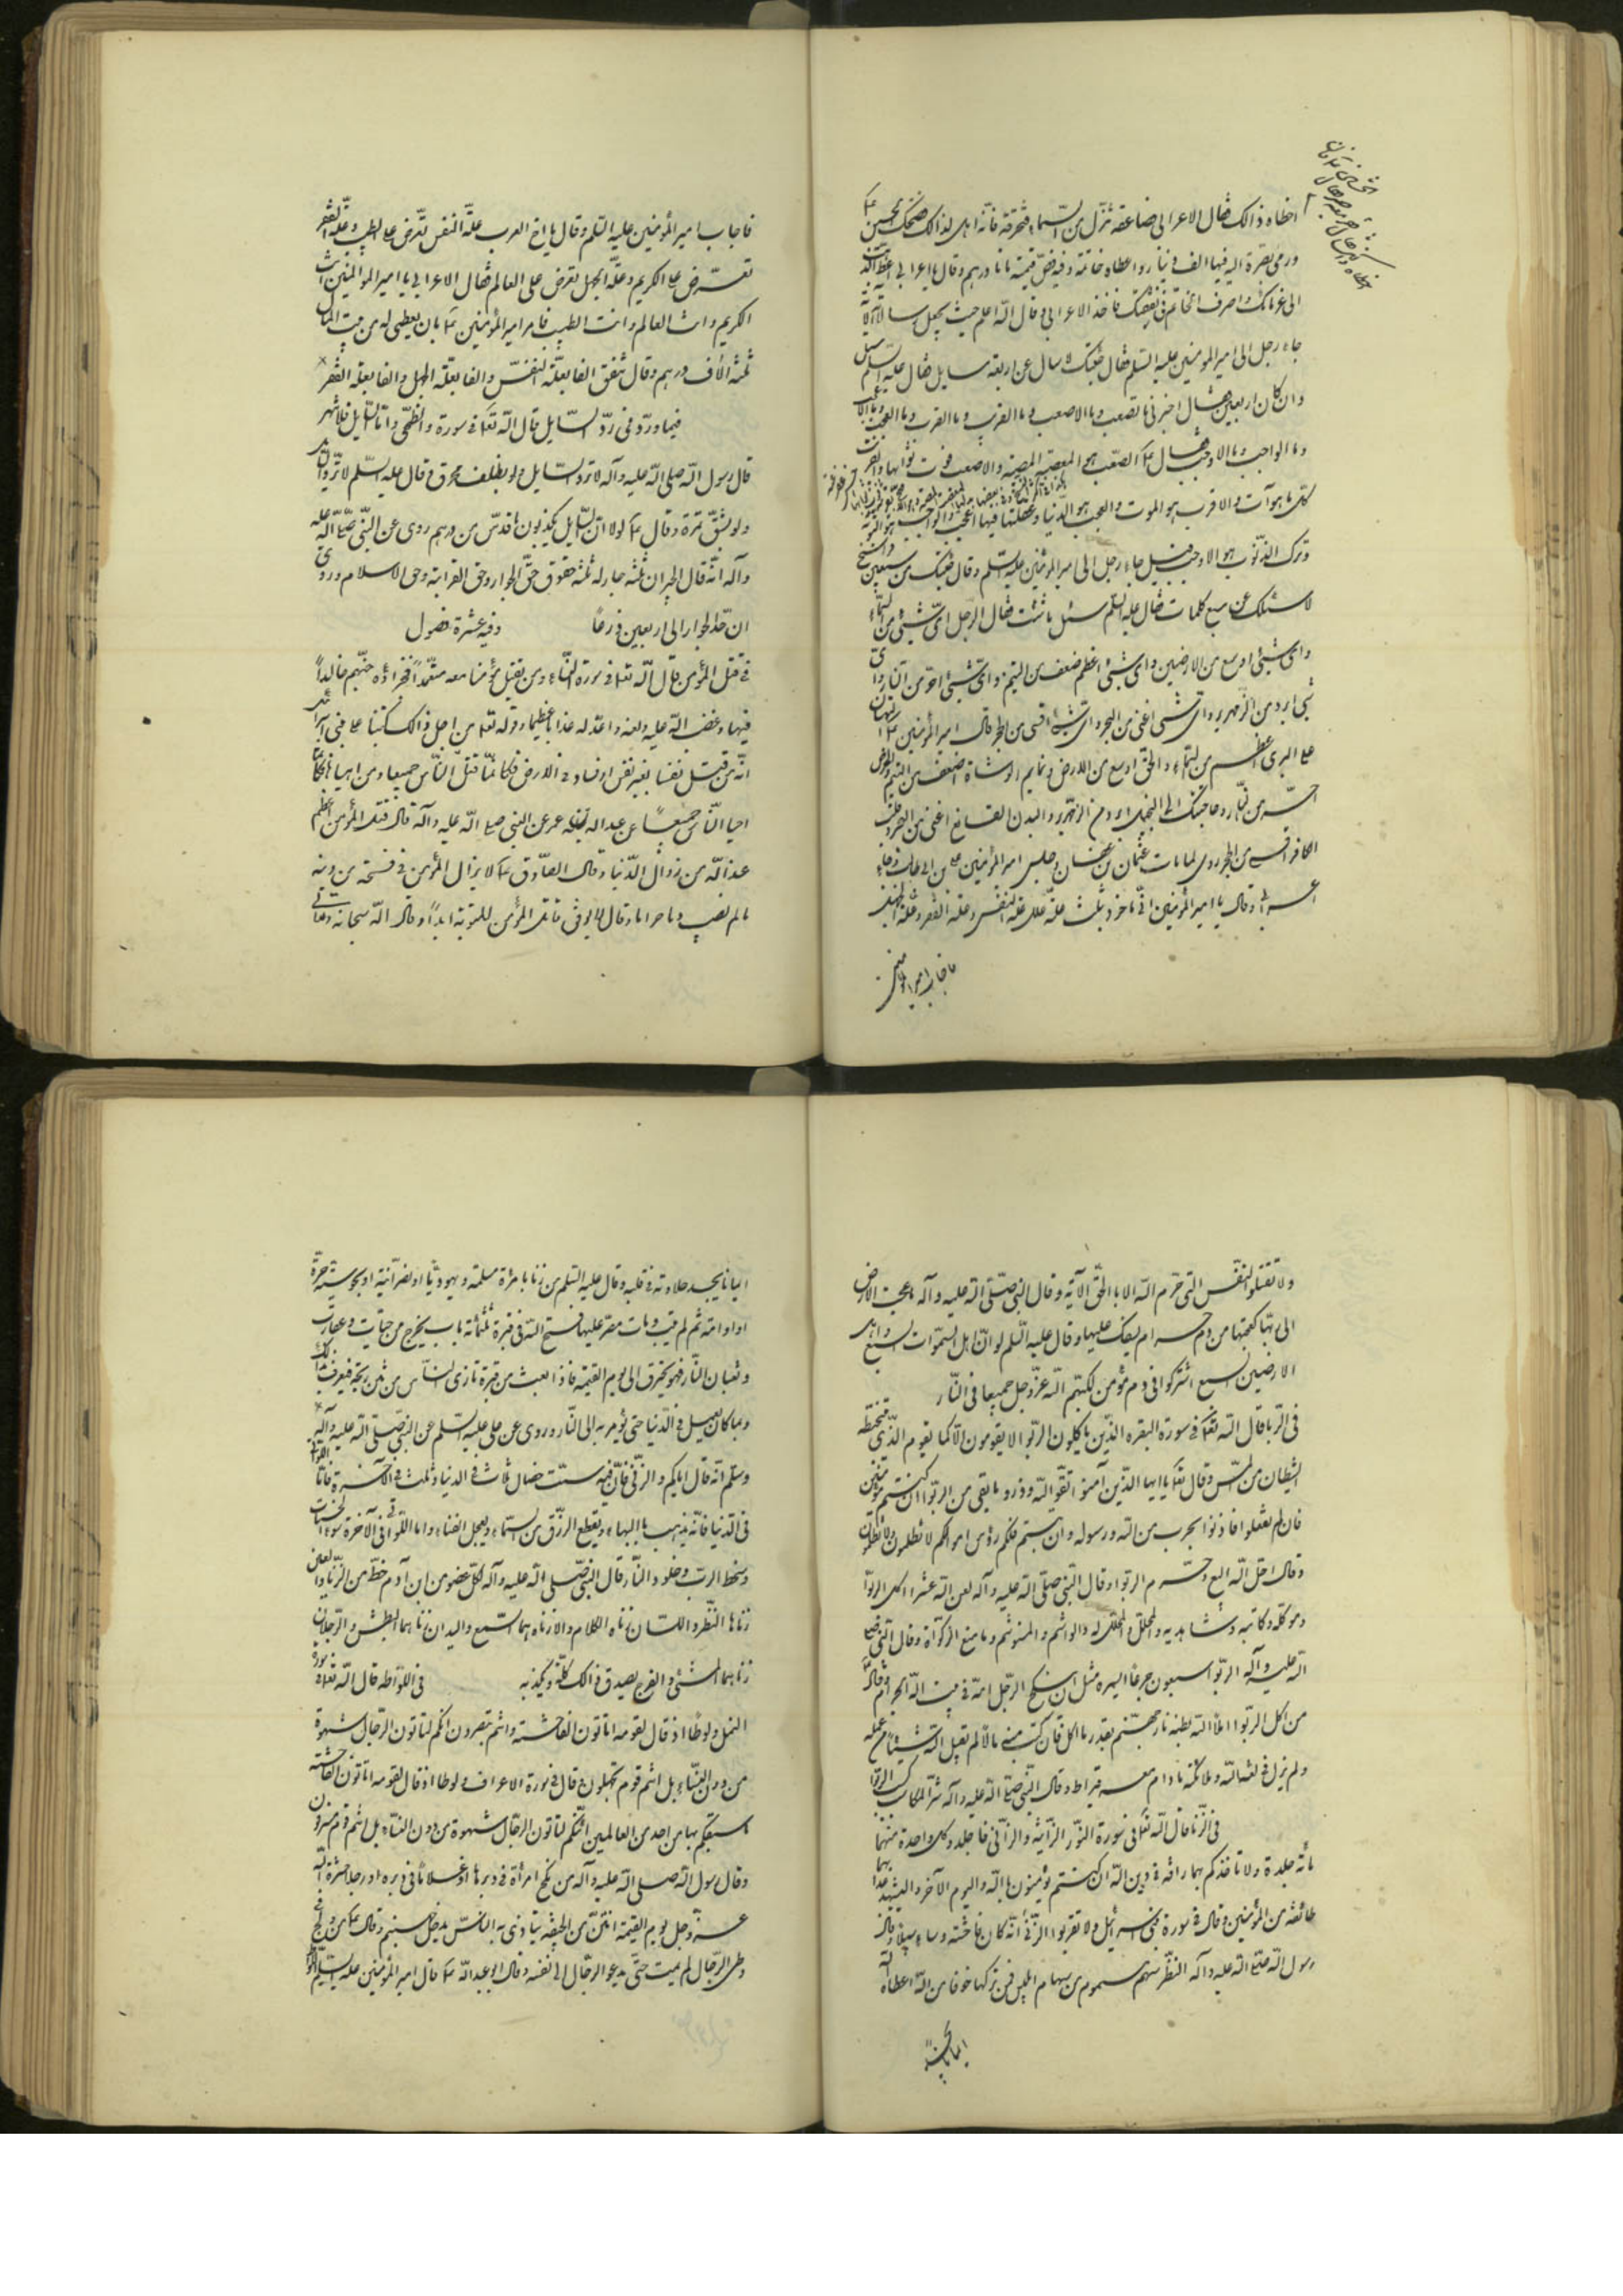 اخطاه ذالك فقال الاعرابى صاعقة تنزل من السماء فتحرقه فانه اهل لذالك فضحك الحسين ع
ورمى بصرة اليه فيها الف دينار واعطاه خاتمه وفيه فص قيمته مأتا درهم وقال يا اعرابى اعط الذهب
الى غرمائك واصرف الخاتم فى نفقتك فاخذ الاعرابى وقال الله اعلم حيث يجعل رسالاته الاية
جاء رجل الى امير المومنين عليه السلم فقال جئتك لاسال عن اربعة مسايل فقال عليه السلم سل
وان كان اربعين فقال اخبرنى ما الصعب وما الاصعب وما القريب وما الاقرب وما العجب وما الاعجب
وما الواجب وما الاوجب فقال ع الصعب هو المعصية والاصعب فوت ثوابها والقريب
كل ما هو آت والاقرب هو الموت والعجب هو الدنيا وغفلتنا فيها اعجب والواجب هو التوبة
وترك الذنوب هو الاوجب قيل جاء رجل الى امير المؤمنين عليه السلم وقال جئتك من سبعين فرسخ
لاسئلك عن سبع كلمات فقال عليه السلم سئل ما شئت فقال الرجل اى شيئ اعظم من السماء
واى شيئ اوسع من الارضين واى شيئ اضعف من اليتيم واى شيئ احر من النار واى
شيئ ابرد من الزمهرير واى شيئ اغنى من البحر واى شيئ اقسى من الحجر قال امير المؤمنين ع البهتان
على البرى اعظم من السماء والحق اوسع من الارض ونمايم الوشاة اضعف من اليتيم والحرص
احر من النار وحاجتك الى البخيل ابرد من الزمهرير والبدن القانع اغنى من البحر وقلب
الكافر اقسى من الحجر روى لما مات عثمان بن عفان وجلس امير المؤمنين على بن ابى طالب وجاء
اعرابى وقال يا امير المؤمنين انى ماخوذ بثلث علة علل علة النفس وعلة الفقر وعلة الجهل
فاجاب امير المؤمنين
فاجاب امير المؤمنين عليه السلم وقال يا اخ العرب علة النفس تعرض على الطبيب وعلة الفقر
تعرض على الكريم وعلة الجهل تعرض على العالم فقال الاعرابى يا امير المؤمنين انت
الكريم وانت العالم وانت الطبيب فامر امير المؤمنين ع بان يعطى له من بيت المال
ثلثة الآف درهم وقال تنفق الفا بعلة النفس والفا بعلة الجهل والفا بعلة الفقر
فيما ورد فى رد السايل قال الله تعا فى سورة والضحى واما السايل فلا تنهر
قال رسول الله صلى الله عليه وآله لا ترد السايل ولو بظلف محرق وقال عليه السلم لا تردوا السائل
ولو بشق تمرة وقال ع لولا ان السايل يكذبون ما قدس من ردهم روى عن النبى صلى الله عليه
وآله انه قال الجيران ثلثة جار له ثلثة حقوق حق الجوار وحق القرابة وحق الاسلام وروى
ان حد الجوار الى اربعين ذرعا وفيه عشرة فصول
فى قتل المؤمن قال الله تعا فى سورة النساء ومن يقتل مؤمنا متعمدا فجزاؤه جهنم خالدا
فيها وغضب الله عليه ولعنه واعد له عذابا عظيما وقوله تعا من اجل ذالك كتبنا على بنى اسرائيل
انه من قتل نفسا بغير نفس او فساد فى الارض فكانما قتل الناس جميعا ومن احياها فكانما
احيا الناس جميعا عن عبد الله بن عمر عن النبى صلى الله عليه وآله قال قتل المؤمن اعظم
عند الله من زوال الدنيا وقال الصادق ع لا يزال المؤمن فى فسحة من دينه
ما لم يصب دما حراما وقال لا يوفق قاتل المؤمن للتوبة ابدا وقال الله سبحانه وتعالى
ولا تقتلوا النفس التى حرم الله الا بالحق الآية وقال النبى صلى الله عليه وآله ما عجت الارض
الى ربها كعجتها من دم حرام يسفك عليها وقال عليه السلم لو ان اهل السموات السبع واهل
الارضين السبع اشتركوا فى دم مؤمن لكبهم الله عز وجل جميعا فى النار
فى الربا قال الله تعا فى سورة البقره الذين ياكلون الربوا لا يقومون الا كما يقوم الذى يتخبطه
الشيطان من المس وقال تعا يا ايها الذين آمنوا اتقوا الله وذروا ما بقى من الربوا ان كنتم مؤمنين
فان لم تفعلوا فاذنوا بحرب من الله ورسوله وان تبتم فلكم رؤس اموالكم لا تظلمون ولا تظلمون
وقال احل الله البيع وحرم الربوا وقال النبى صلى الله عليه وآله لعن الله عشرا اكل الربوا
وموكله وكاتبه وشاهديه والمحلل والمحلل له والواشم والمتوشم ومانع الزكوة وقال النبى صلى
الله عليه وآله الربوا سبعون جزءا ايسره مثل ان ينكح الرجل امه فى بيت الله الحرام وقال
من اكل الربوا املأ الله بطنه نار جهنم بقدر ما اكل فان كسب منه مالا لم يقبل الله شيئا من عمله
ولم يزل فى لعنة الله وملائكته ما دام معه قيراط وقال النبى صلى الله عليه وآله شر المكاسب كسب الربوا
فى الزنا قال الله تعا فى سورة النور الزانية والزانى فاجلدوا كل واحدة منهما
مائة جلدة ولا تاخذكم بهما رافة فى دين الله ان كنتم تؤمنون بالله واليوم الآخر وليشهد عذابهما
طائفة من المؤمنين وقال فى سورة بنى اسرائيل ولا تقربوا الزنى انه كان فاحشة وساء سبيلا وقال
رسول الله صلى الله عليه وآله النظر سهم مسموم من سهام ابليس فمن تركها خوفا من الله اعطاه الله
ايمانا يجد
ايمانا يجد حلاوته فى قلبه وقال عليه السلم من زنا بامرأة مسلمة او يهودية او نصرانية او مجوسية حرة
او امة ثم لم يتب ومات مصر عليها فتح الله فى قبره ثلثمائة باب يخرج من حيات وعقارب
وثعبان النار فهو يحترق الى يوم القيمة فاذا بعث من قبره تاذى الناس من نتن ريحه فيعرف بذلك
وبما كان يعمل فى الدنيا حتى يؤمر به الى النار وروى عن على عليه السلم عن النبى صلى الله عليه وآله
وسلم انه قال اياكم والزنى فان فيه ست خصال ثلاث فى الدنيا وثلث فى الآخرة فاما اللواتى
فى الدنيا فانه يذهب بالبهاء ويقطع الرزق من السماء ويعجل الفناء واما اللواتى فى الآخرة سوء الحساب
وسخط الرب وخلود النار قال النبى صلى الله عليه وآله لكل عضو من ابن آدم حظ من الزنا والعين
زناها النظر واللسان زناه الكلام والاذناه زناهما السمع واليدان زناهما البطش والرجلان
زناهما المشى والفرج يصدق ذالك كله ويكذبه فى اللواطة قال الله تعا فى سورة
النمل ولوطا اذ قال لقومه اتاتون الفاحشة وانتم تبصرون ائنكم لتاتون الرجال شهوة
من دون النساء بل انتم قوم تجهلون وقال فى سورة الاعراف ولوطا اذ قال لقومه اتاتون الفاحشة
ما سبقكم بها من احد من العالمين ائنكم لتاتون الرجال شهوة من دون النساء بل انتم قوم مسرفون
وقال رسول الله صلى الله عليه وآله من نكح امرأة فى دبرها او غلاما فى دبره او رجلا حشره الله
عز وجل يوم القيمة انتن من الجيفة يتاذى به الناس حتى يدخل جهنم وقال ع من الح فى
وطى الرجال لم يمت حتى يدعو الرجال الى نفسه وقال ابو عبد الله ع قال امير المؤمنين عليه السلم